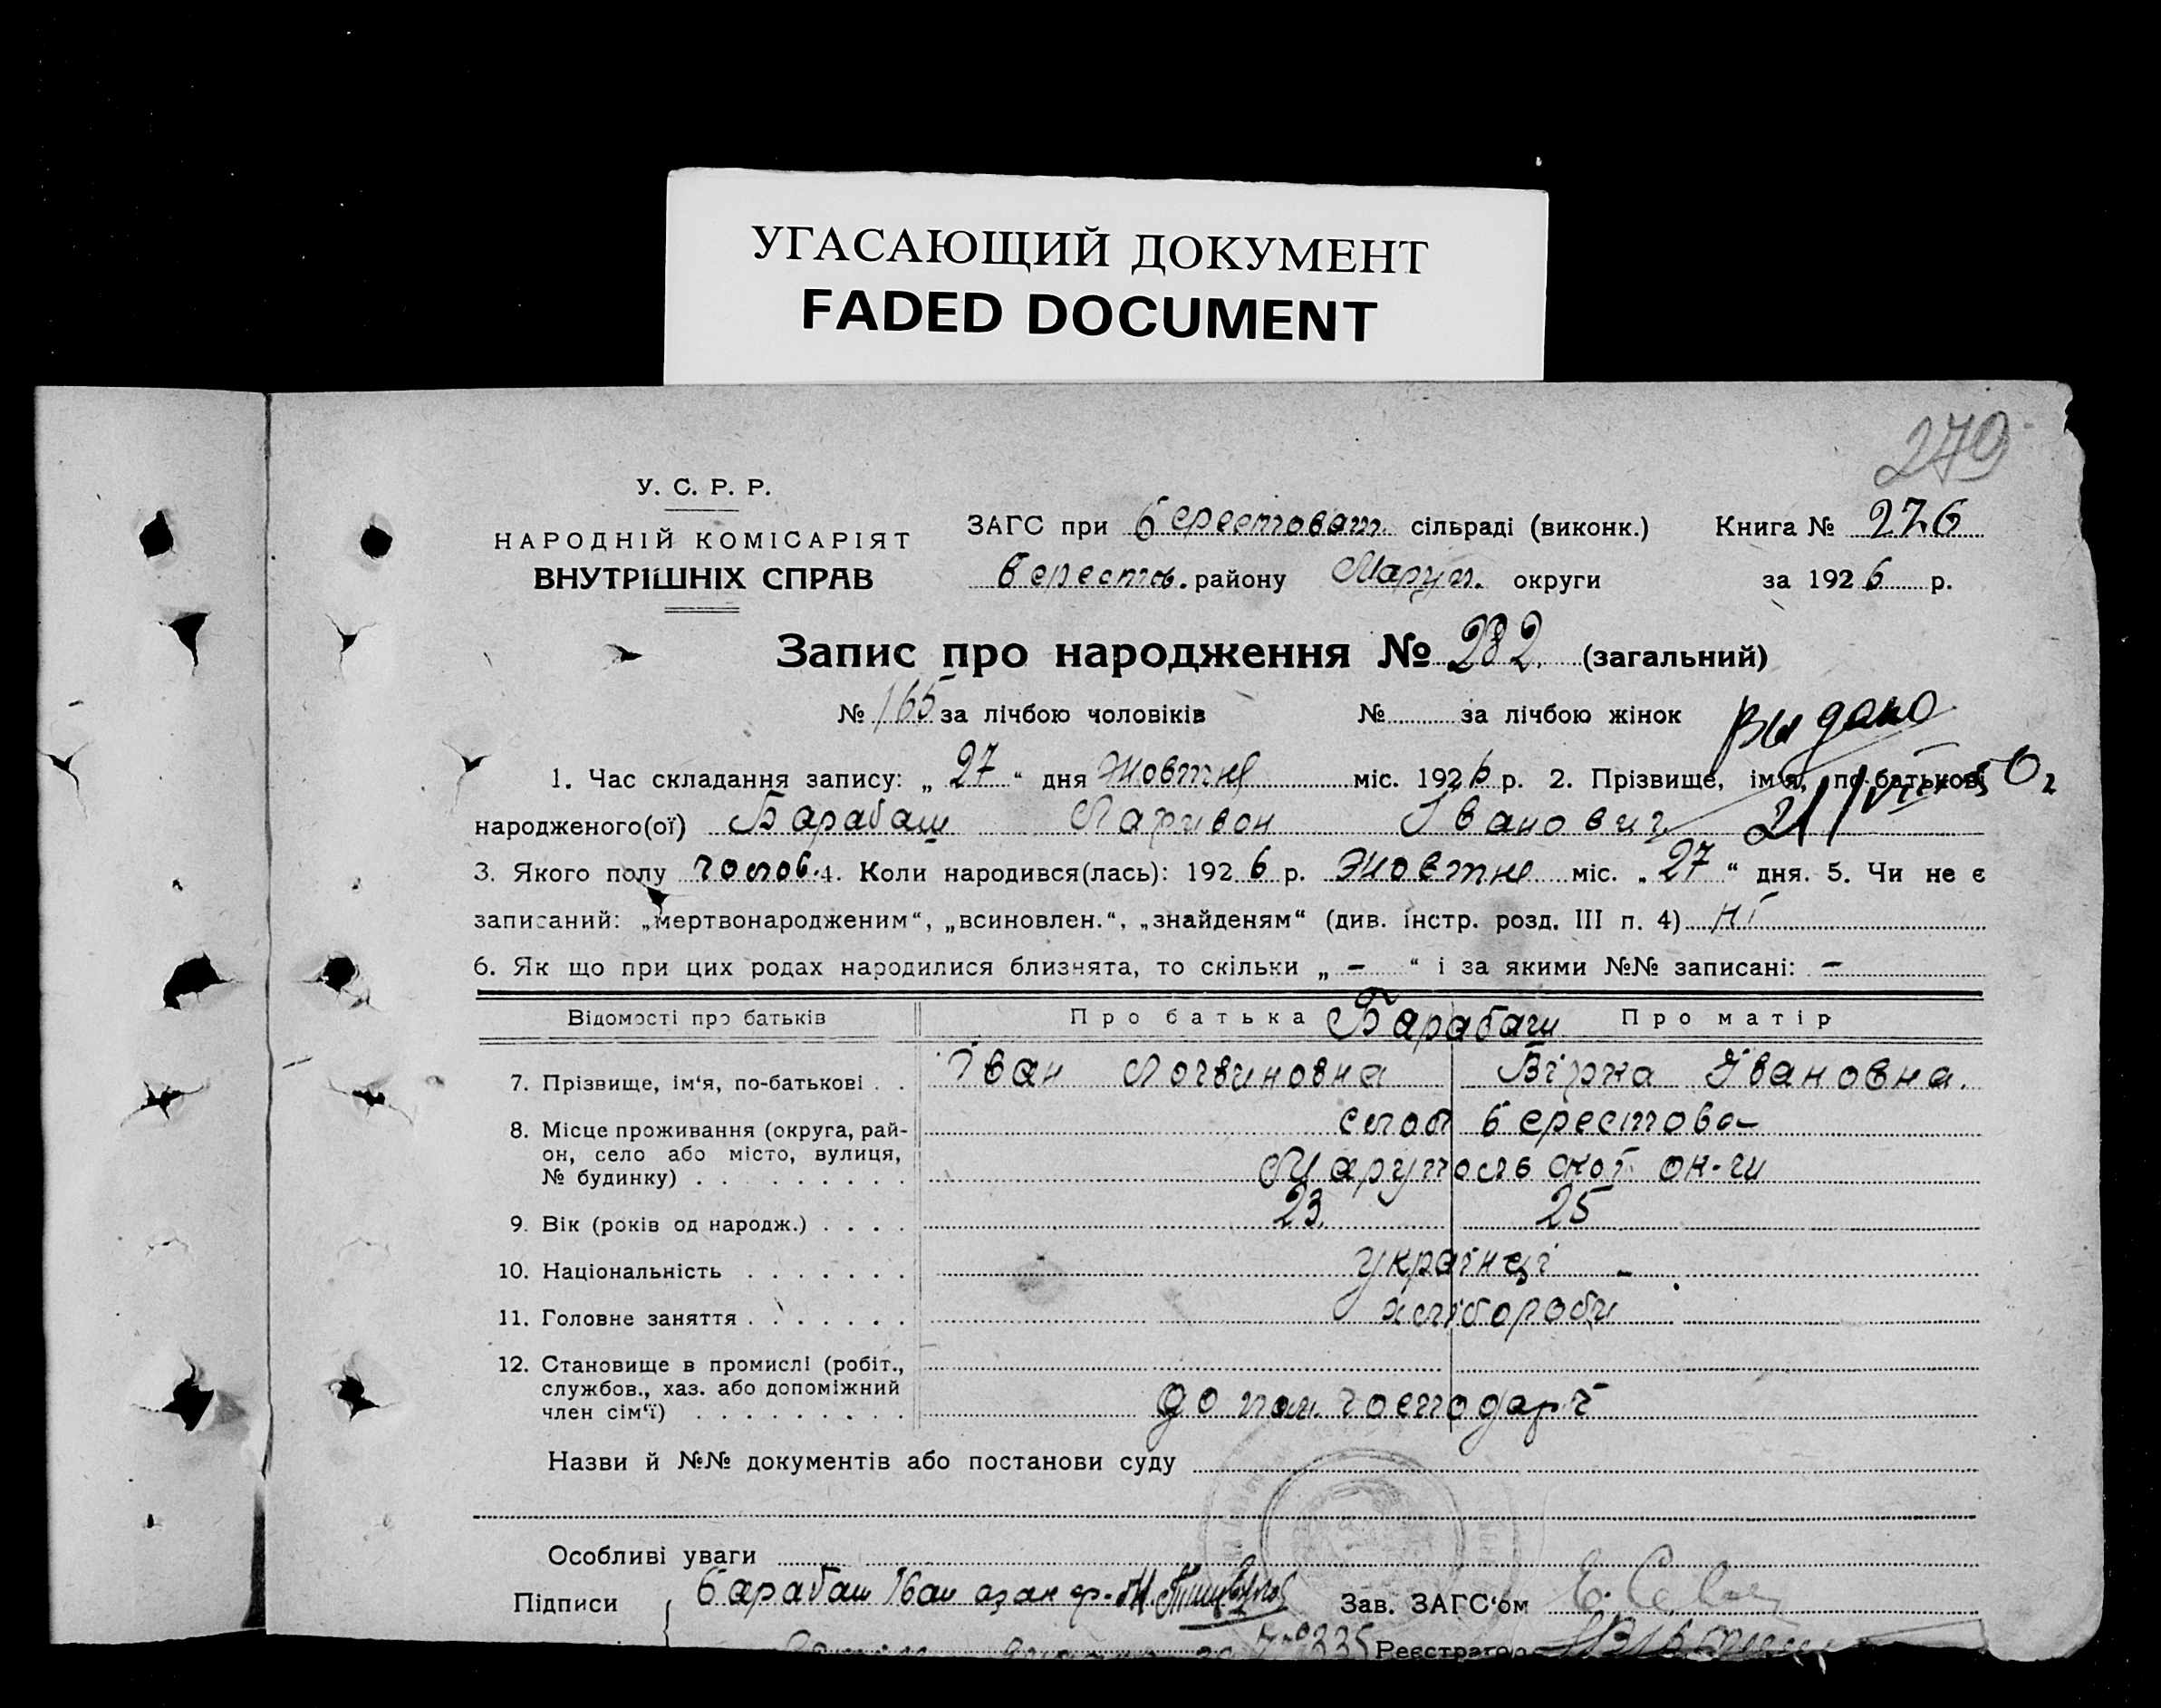 УГАСАЮЩИЙ ДОКУМЕНТ
FADED DOCUMENT
279
У. С. Р. Р.
НАРОДНІЙ КОМІСАРІЯТ
ВНУТРІШНІХ СПРАВ
ЗАГС при Берестоват. сільраді (виконк.) Книга № 276
Берестов. району Маруп. округи за 1926 р.
Запис про народження № 282 (загальний)
№ 165 за лічбою чоловіків № за лічбою жінок
Выдано
1. Час складання запису: „27“ дня Жовтня міс. 1926 р. 2. Прізвище, ім‘я, по-батькові
народженого(ої) Барабаш Ларивон Іванович
3. Якого полу чолов. 4. Коли народився(лась): 1926 р. Жовтня міс. „27“ дня. 5. Чи не є
записаний: „мертвонародженим“, „всиновлен.“, „знайденям“ (див. інстр. розд. III п. 4) ні
6. Як що при цих родах народилися близнята, то скільки „ – “ і за якими №№ записані: –
Відомості про батьків Про батька Барабаш Про матір
7. Прізвище, ім‘я, по-батькові . . Іван Логвиновна Вірка Івановна.
8. Місце проживання (округа, рай- слоб Берестова
он, село або місто, вулиця, Марупольської ок-ги
№ будинку) . . . . . . . . .
9. Вік (років од народж.) . . . . 23. 25
10. Національність . . . . . . . українці –
11. Головне заняття . . . . . . . хлібороби
12. Становище в промислі (робіт.,
службов., хаз. або допоміжний
член сім‘ї) . . . . . . . . . допом. господарч
Назви й №№ документів або постанови суду
Особливі уваги
Підписи Барабаш Іван Зав. ЗАГС‘ом
335 Реєстратор